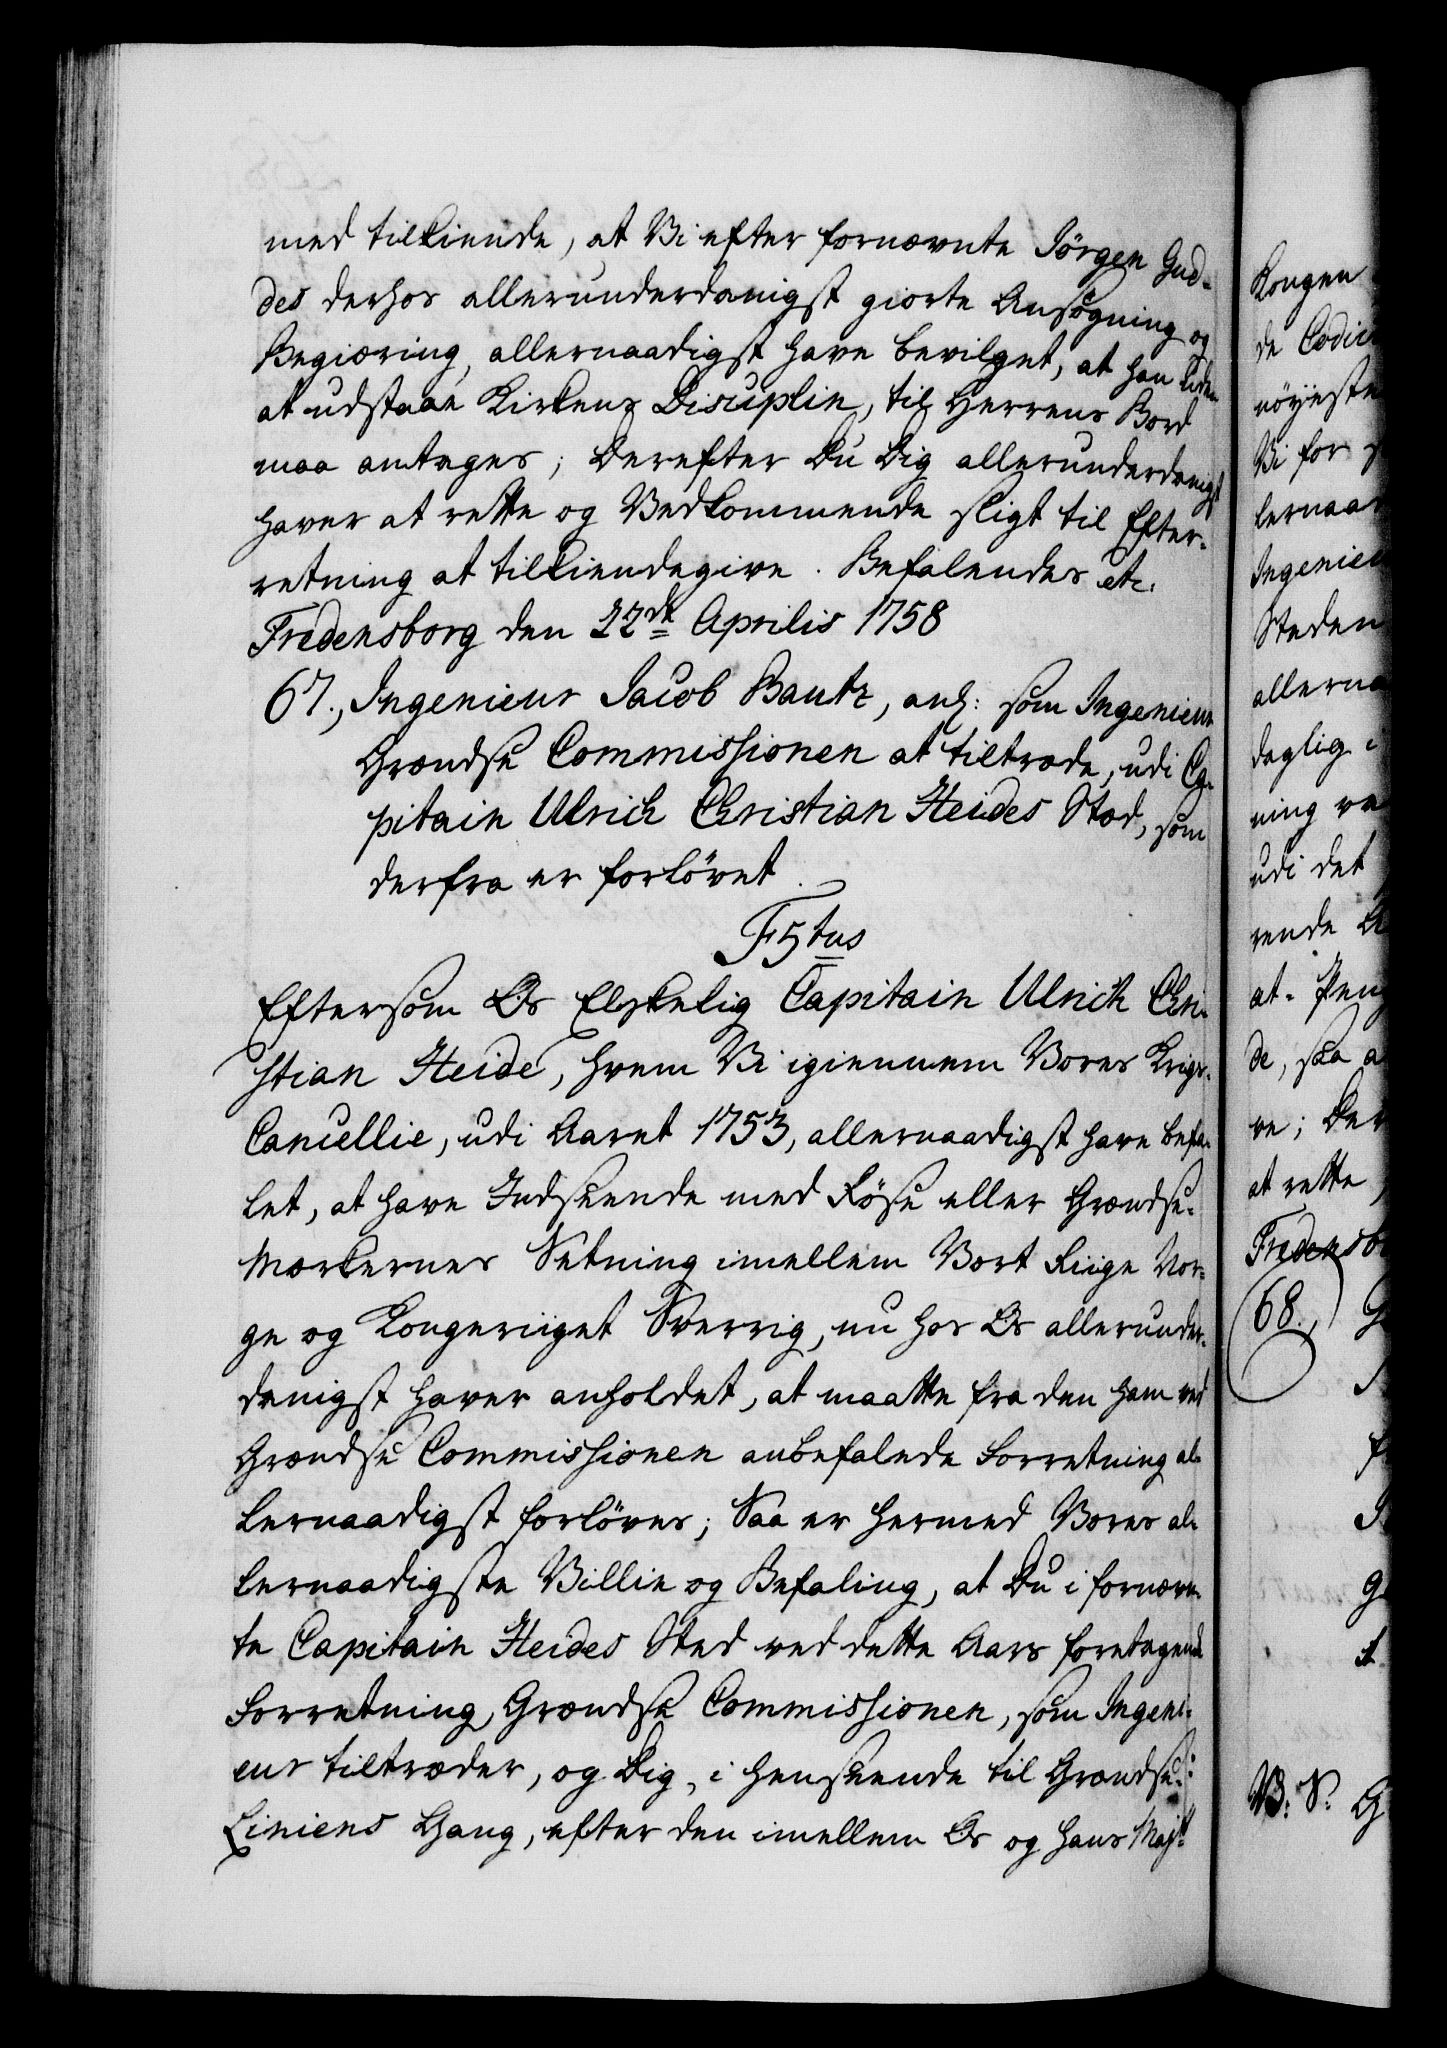 med tilkiende, at Vi efter fornævnte Jörgen Gud-
des derhos allerunderdanigst giorte Ansøgning og
Begiæring, allernaadigst have bevilget, at han uden
at udstaae Kirkens Disciplin, til Herrens Bord
maa antages; Derefter Du Dig allerunderdanigst
haver at rette og Vedkommende sligt til Efter-
retning at tilkiendegive. Befalendes etc.
Fredensborg den 22de Aprilis 1758
67., Ingenieur Jacob Bautz, anl: som Ingenieur
Grændse Commissionen at tiltræde, udi Ca-
pitain Ulrich Christian Heides Stæd, som
derfra er forlövet.
F5tus
Eftersom Os Elskelig Capitain Ulrich Chri-
stian Heide, hvem Vi igiennem Vores Krigs-
Cancellie, udi Aaret 1753, allernaadigst have befa-
let, at have Indseende med Röse eller Grændse-
Mærkernes Sætning imellem Vort Riige Nor-
ge og Kongeriiget Sverrig, nu hos Os allerunder-
danigst haver anholdet, at maatte fra den ham ved
Grændse Commissionen anbefalede Forretning al-
lernaadigst forlöves; Saa er hermed Vores al-
lernaadigste Villie og Befaling, at Du i fornævn-
te Capitain Heides Sted ved dette Aars foretagende
Forretning, Grændse Commissionen, som Ingeni-
eur tiltræder, og Dig, i Henseende til Grændse-
Liniens Gang, efter den imellem Os og Hans Majtt
Kongen
de
nöyeste
Vi for
lernaa
Ingenieu
Steden
allerna
daglig i
ning
udi det
rende
at
de, saa
ve; Der
at rette
Fredensbo
68.,